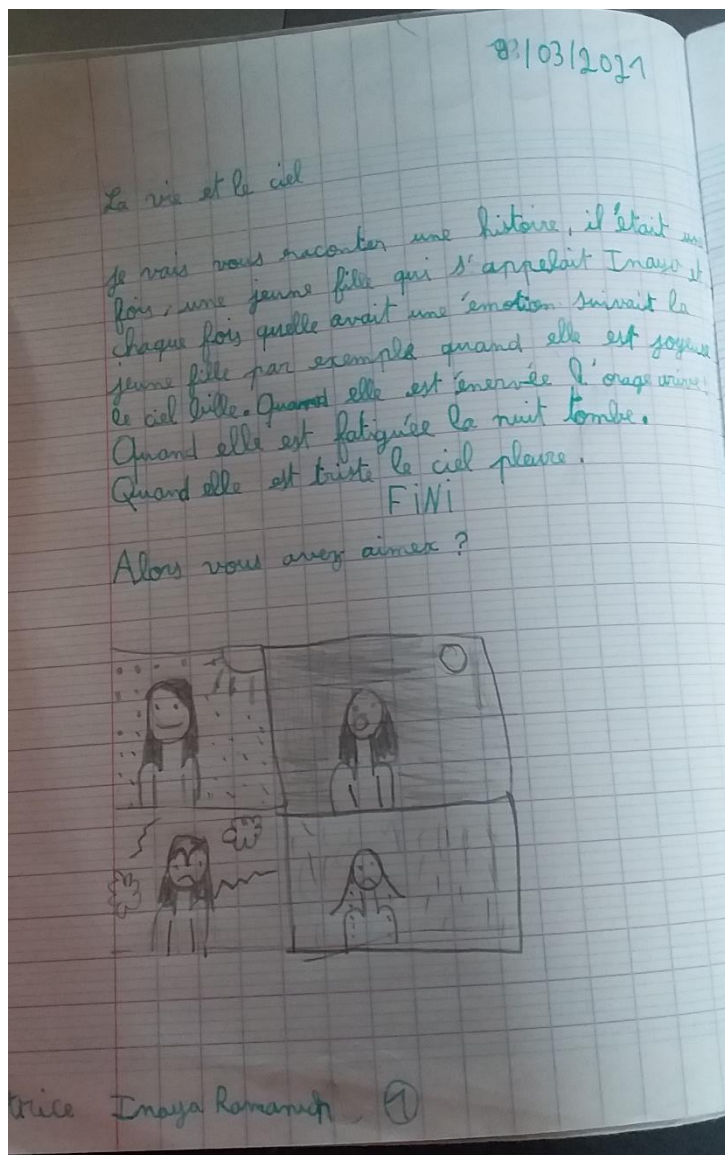 /03/2021
La vie et le ciel
Je vais vous raconter une histoire, il était une
fois, une jeune fille qui s'appelait Inaya et
chaque fois quelle avait une émotion suivait la
jeune fille par exemple quand elle est joyeuse
le ciel brille. Quand elle est énervée l'orage arrive.
Quand elle est fatiguée la nuit tombe.
Quand elle est triste le ciel pleure.
FiNi
Alors vous avez aimer ?
trice Inaya 1